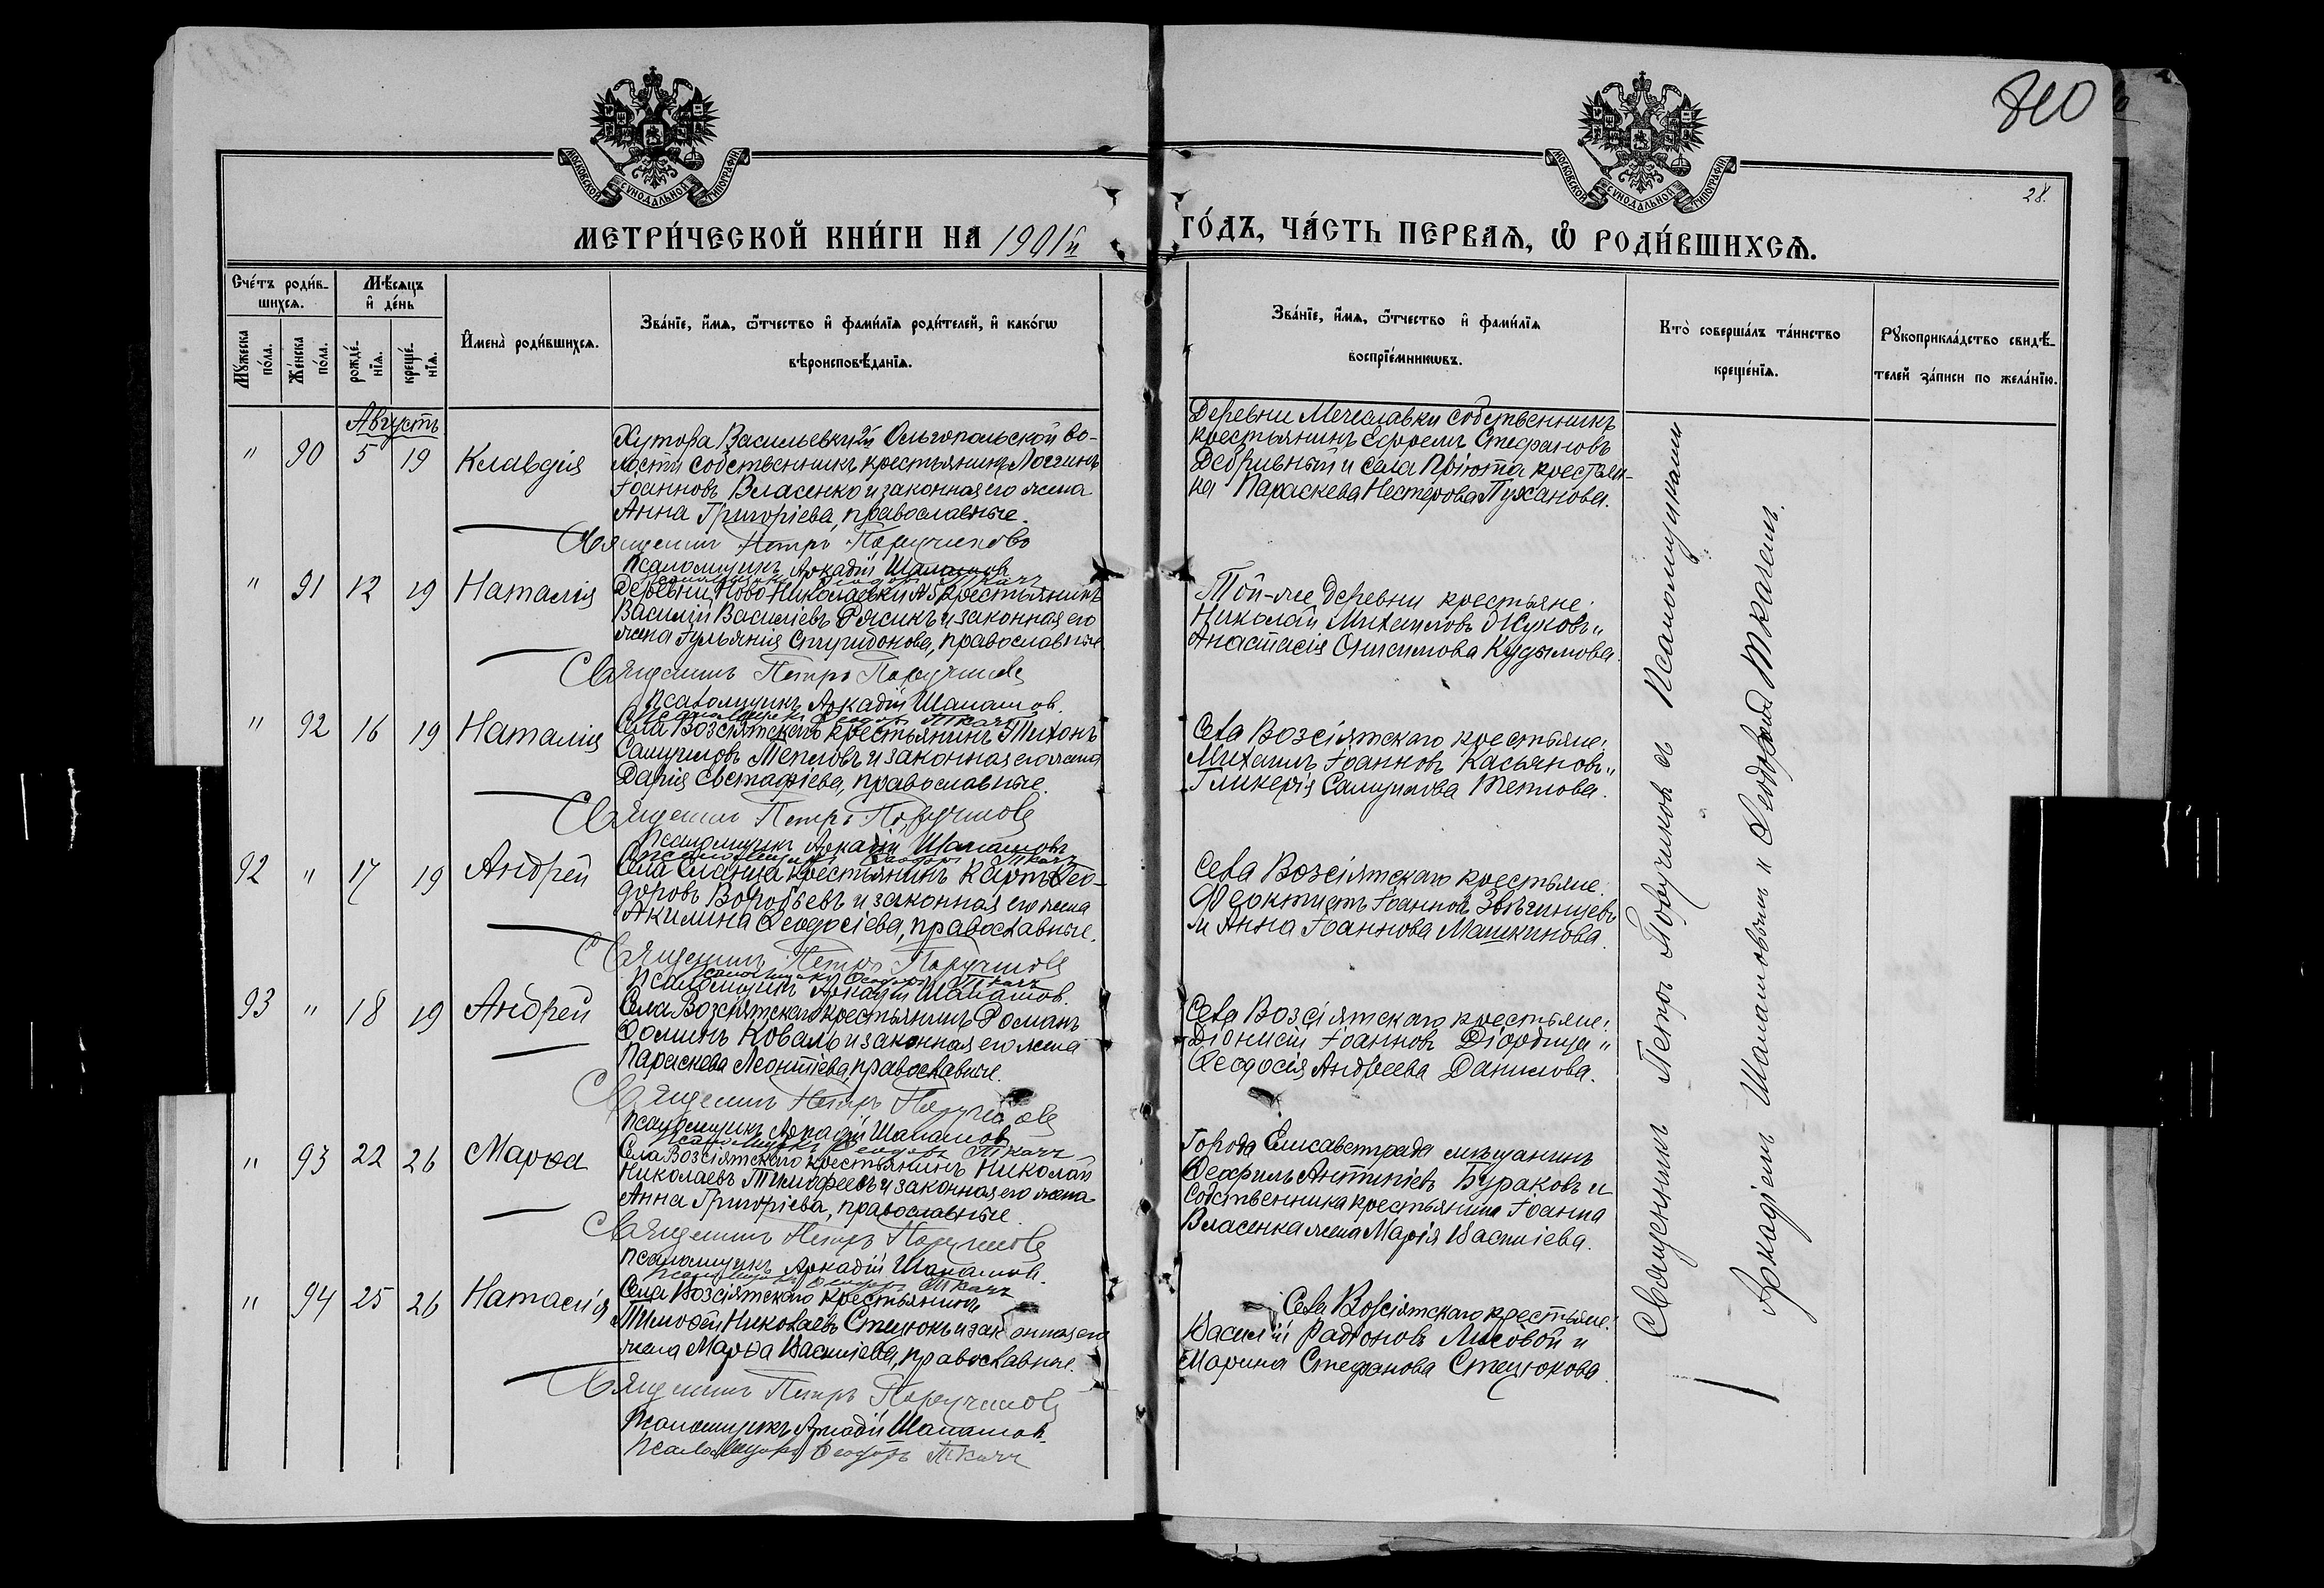 810
28.
МОСКОВСКОЙ СѴНОДАЛЬНОЙ ТИПОГРАФІИ
МОСКОВСКОЙ СѴНОДАЛЬНОЙ ТИПОГРАФІИ
МЕТРИ́ЧЕСКОЙ КНИ́ГИ НА 1901й
ГО́ДЪ, ЧА́СТЬ ПЕРВАѦ, Ѡ҆ РОДИ́ВШИХСѦ.
Сче́тъ роди́в-
шихсѧ.
Мѣ́сѧцъ
и҆ де́нь
Мꙋ́жеска по́ла.
Же́нска по́ла.
рожде́-нїѧ.
креще́-нїѧ.
И҆мена̀ роди́вшихсѧ.
Зва́нїе, и҆́мѧ, ѻ҆́тчество и҆ фами́лїѧ роди́телей, и҆ како́гѡ
вѣроисповѣ́данїѧ.
Зва́нїе, и҆́мѧ, ѻ҆́тчество и҆ фами́лїѧ
воспрїе́мникѡвъ.
Кто̀ соверша́лъ та́инство
креще́нїѧ.
Рꙋкоприкла́дство свидѣ́-
телей за́писи по жела́нїю.
Августъ
" 90 5 19 Клавдія
Хутора Васильевки 2й Ольгопольской во-
лости собственникъ крестьянинъ Логгинъ
Іоанновъ Власенко и законная его жена
Анна Григоріева, православные.
Священникъ Петръ Поручиковъ
Псаломщикъ Аркадій Шалашовъ
Псаломщикъ Ѳеодоръ Ткачъ
Деревни Мечеславки собственникъ
крестьянинъ Ефремъ Стефановъ
и села Пріюта крестьян-
ка Параскева Нестерова Пуханова.
" 91 12 19 Наталія
Деревни Ново Николаевки крестьянинъ
Василій Василіевъ Рясикъ и законная его
жена Іульянія Спиридонова, православные
Священникъ Петръ Поручиковъ
Псаломщикъ Аркадій Шалашов.
Псаломщикъ Ѳеодоръ Ткачъ
Той-же деревни крестьяне:
Николай Михаиловъ Жуковъ "
Анастасія Онисимова Кудымова.
" 92 16 19 Наталія
Села Возсіятскаго крестьянинъ Тихонъ
Самуиловъ Тепловъ и законная его жена
Дарія Евстафіева, православные.
Священникъ Петръ Поручиковъ
Псаломщикъ Аркадій Шалашовъ
Псаломщикъ Ѳеодоръ Ткачъ
Села Возсіятскаго крестьяне:
Михаилъ Іоанновъ Касьяновъ "
Гликерія Самуилова Теплова.
92 " 17 19 Андрей
Села Еланца крестьянинъ Карпъ Ѳео-
доровъ Воробьевъ и законная его жена
Акилина Ѳеодосіева, православные.
Священникъ Петръ Поручиковъ
Псаломщикъ Ѳеодоръ Ткачъ
Псаломщикъ Аркадій Шалашов.
Села Возсіятскаго крестьяне:
Ѳеоктистъ Іоанновъ Звѣгинцевъ
и Анна Іоаннова Машкинова.
93 " 18 19 Андрей
Села Возсіятскаго крестьянинъ Романъ
Ѳоминъ Коваль и законная его жена
Параскева Леонтіева, православные.
Священникъ Петръ Поручиковъ
Псаломщикъ Аркадій Шалашов
Псаломщикъ Ѳеодоръ Ткачъ
Села Возсіятскаго крестьяне:
Діонисій Іоанновъ Діордица "
Ѳеодосія Андреева Данилова.
" 93 22 26 Марѳа
Села Возсіятскаго крестьянинъ Николай
Николаевъ Тимофеевъ и законная его жена
Анна Григоріева, православные.
Священникъ Петръ Поручиковъ
Псаломщикъ Аркадій Шалашов.
Псаломщикъ Ѳеодоръ Ткачъ
Города Елисаветграда мѣщанинъ
Ѳеофилъ Антипіевъ Бураковъ и
собственника крестьянина Іоанна
Власенка жена Марія Василіева.
" 94 25 26 Наталія
Села Возсіятскаго крестьянинъ
Тимоѳей Николаевъ Стецюкъ и законная его
жена Марѳа Василіева, православные.
Священникъ Петръ Поручиковъ
Псаломщикъ Аркадій Шалашов.
Псаломщикъ Ѳеодоръ Ткачъ
Села Возсіятскаго крестьяне:
Василій Радіоновъ Лисовой и
Марина Стефанова Стецюкова.
Священникъ Петръ Поручиковъ съ Псаломщиками
Аркадіемъ Шалашовымъ " Ѳеодоромъ Ткачемъ.